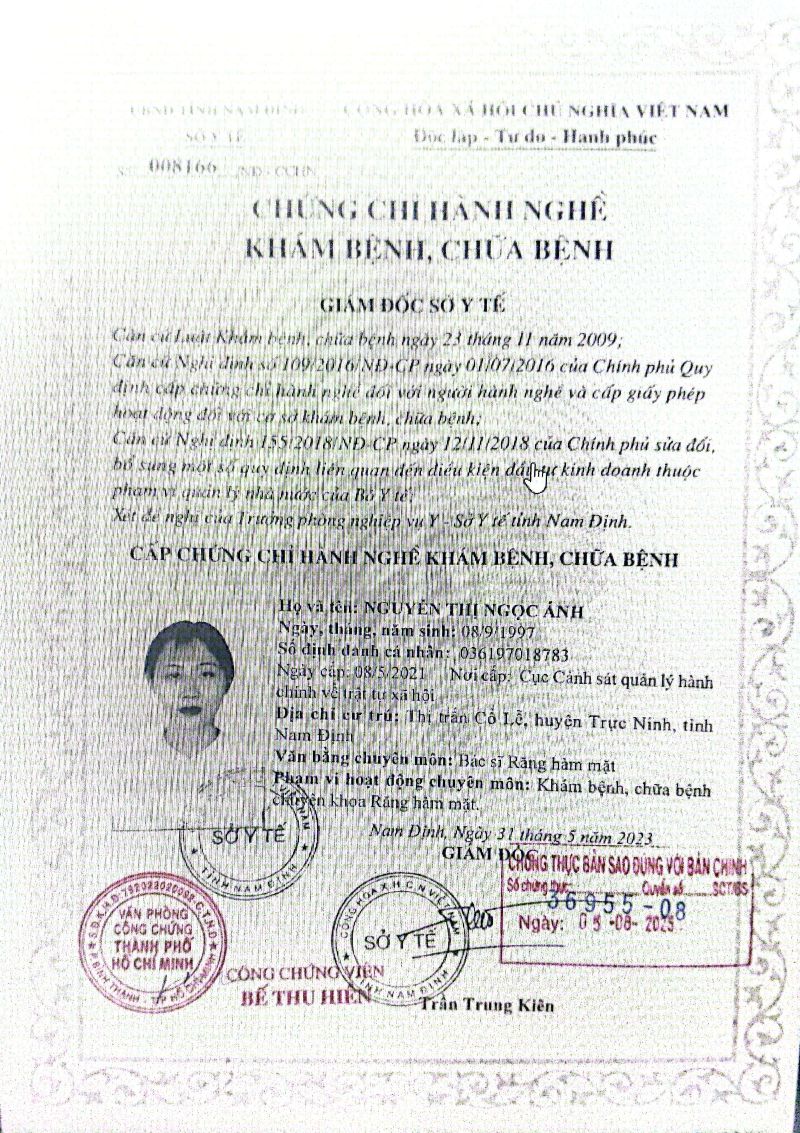 UBND TỈNH NAM ĐỊNH
SỞ Y TẾ
CỘNG HÒA XÃ HỘI CHỦ NGHĨA VIỆT NAM
Độc lập - Tự do - Hạnh phúc
Số: 008166 /NĐ-CCHN
CHỨNG CHỈ HÀNH NGHỀ
KHÁM BỆNH, CHỮA BỆNH
GIÁM ĐỐC SỞ Y TẾ
Căn cứ Luật Khám bệnh, chữa bệnh ngày 23 tháng 11 năm 2009;
Căn cứ Nghị định số 109/2016/NĐ-CP ngày 01/07/2016 của Chính phủ Quy
định cấp chứng chỉ hành nghề đối với người hành nghề và cấp giấy phép
hoạt động đối với cơ sở khám bệnh, chữa bệnh;
Căn cứ Nghị định 155/2018/NĐ-CP ngày 12/11/2018 của Chính phủ sửa đổi,
bổ sung một số quy định liên quan đến điều kiện đầu tư kinh doanh thuộc
phạm vi quản lý nhà nước của Bộ Y tế;
Xét đề nghị của Trưởng phòng nghiệp vụ Y - Sở Y tế tỉnh Nam Định.
CẤP CHỨNG CHỈ HÀNH NGHỀ KHÁM BỆNH, CHỮA BỆNH
Họ và tên: NGUYỄN THỊ NGỌC ÁNH
Ngày, tháng, năm sinh: 08/9/1997
Số định danh cá nhân: 036197018783
Ngày cấp: 08/5/2021 Nơi cấp: Cục Cảnh sát quản lý hành
chính về trật tự xã hội
Địa chỉ cư trú: Thị trấn Cổ Lễ, huyện Trực Ninh, tỉnh
Nam Định
Văn bằng chuyên môn: Bác sĩ Răng hàm mặt
Phạm vi hoạt động chuyên môn: Khám bệnh, chữa bệnh
chuyên khoa Răng hàm mặt.
Nam Định, Ngày 31 tháng 5 năm 2023
GIÁM ĐỐC
SỞ Y TẾ
TỈNH NAM ĐỊNH
CHỨNG THỰC BẢN SAO ĐÚNG VỚI BẢN CHÍNH
Số chứng thực Quyển số SCT/BS
36955-08
Ngày: 05-08-2025
VĂN PHÒNG
CÔNG CHỨNG
THÀNH PHỐ
HỒ CHÍ MINH
Q.BÌNH THẠNH - T.P HỒ CHÍ MINH
CỘNG HÒA X.H.C.N VIỆT NAM
SỞ Y TẾ
TỈNH NAM ĐỊNH
CÔNG CHỨNG VIÊN
BẾ THU HIỀN
Trần Trung Kiên